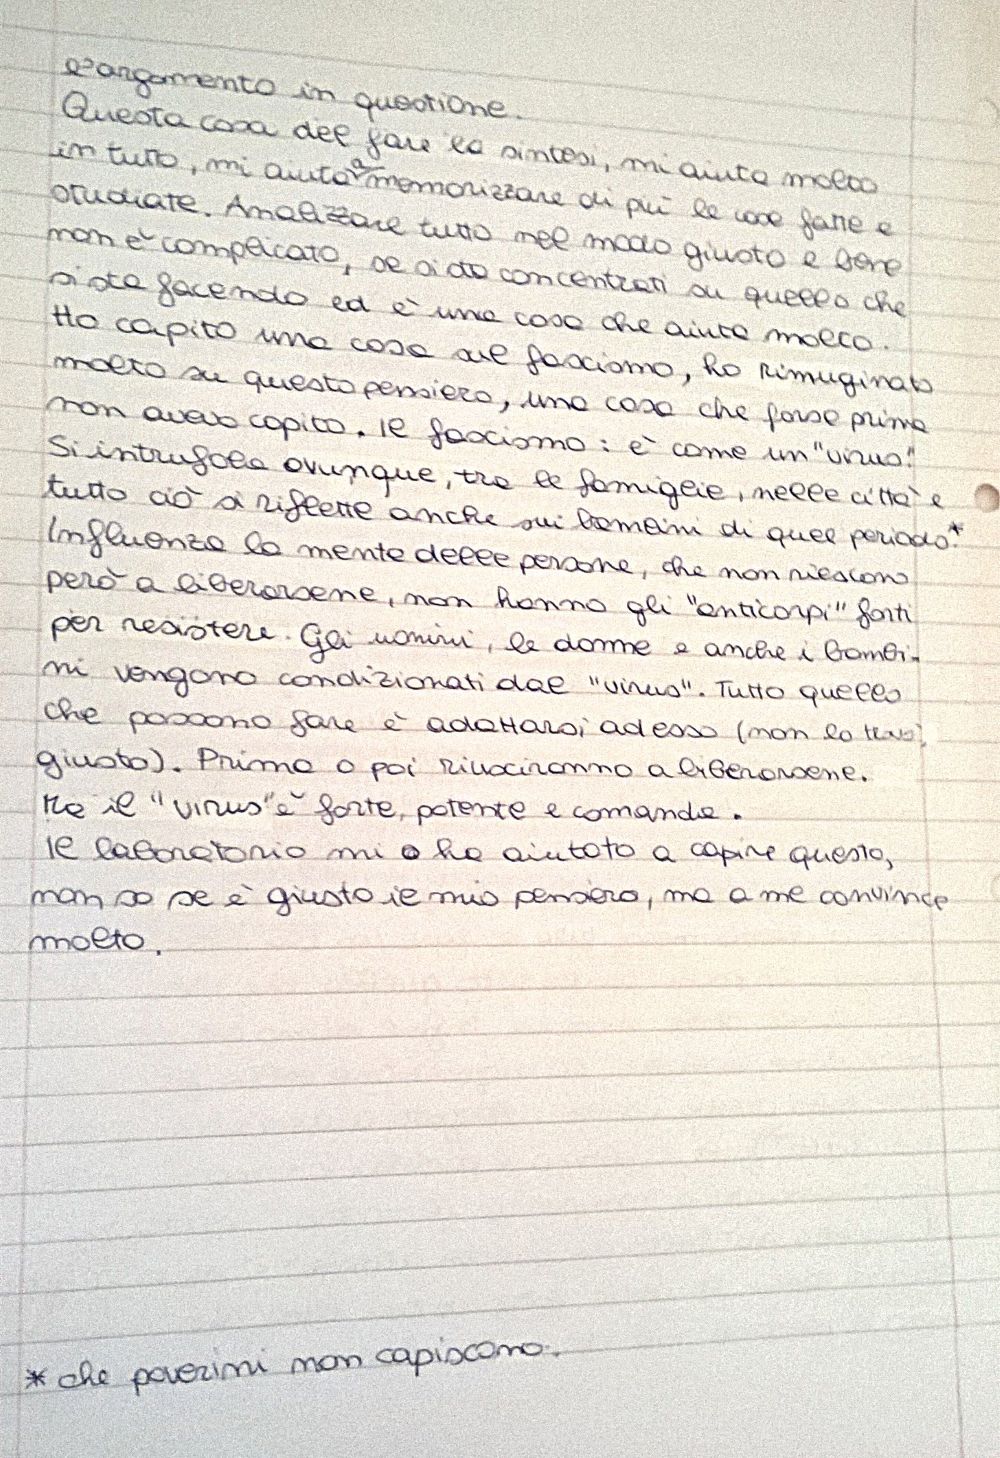 l'argomento in questione.
Questa cosa del fare la sintesi, mi aiuta molto
in tutto, mi aiuta a memorizzare di più le cose fatte e
studiate. Analizzare tutto nel modo giusto e bene
non è complicato, se si sta concentrati su quello che
si sta facendo ed è una cosa che aiuta molto.
Ho capito una cosa sul fascismo, ho rimuginato
molto su questo pensiero, una cosa che forse prima
non avevo capito. Il fascismo: è come un "virus".
Si intrufola ovunque, tra le famiglie, nelle città e
tutto ciò si riflette anche sui bambini di quel periodo.*
Influenza la mente delle persone, che non riescono
però a liberarsene, non hanno gli "anticorpi" forti
per resistere. Gli uomini, le donne e anche i bambi-
ni vengono condizionati dal "virus". Tutto quello
che possono fare è adattarsi adesso (non lo
giusto). Prima o poi riusciranno a liberarsene.
Ma il "virus" è forte, potente e comanda.
Il laboratorio mi ha aiutato a capire questo,
non so se è giusto il mio pensiero, ma a me convince
molto.
* che poverini non capiscono.